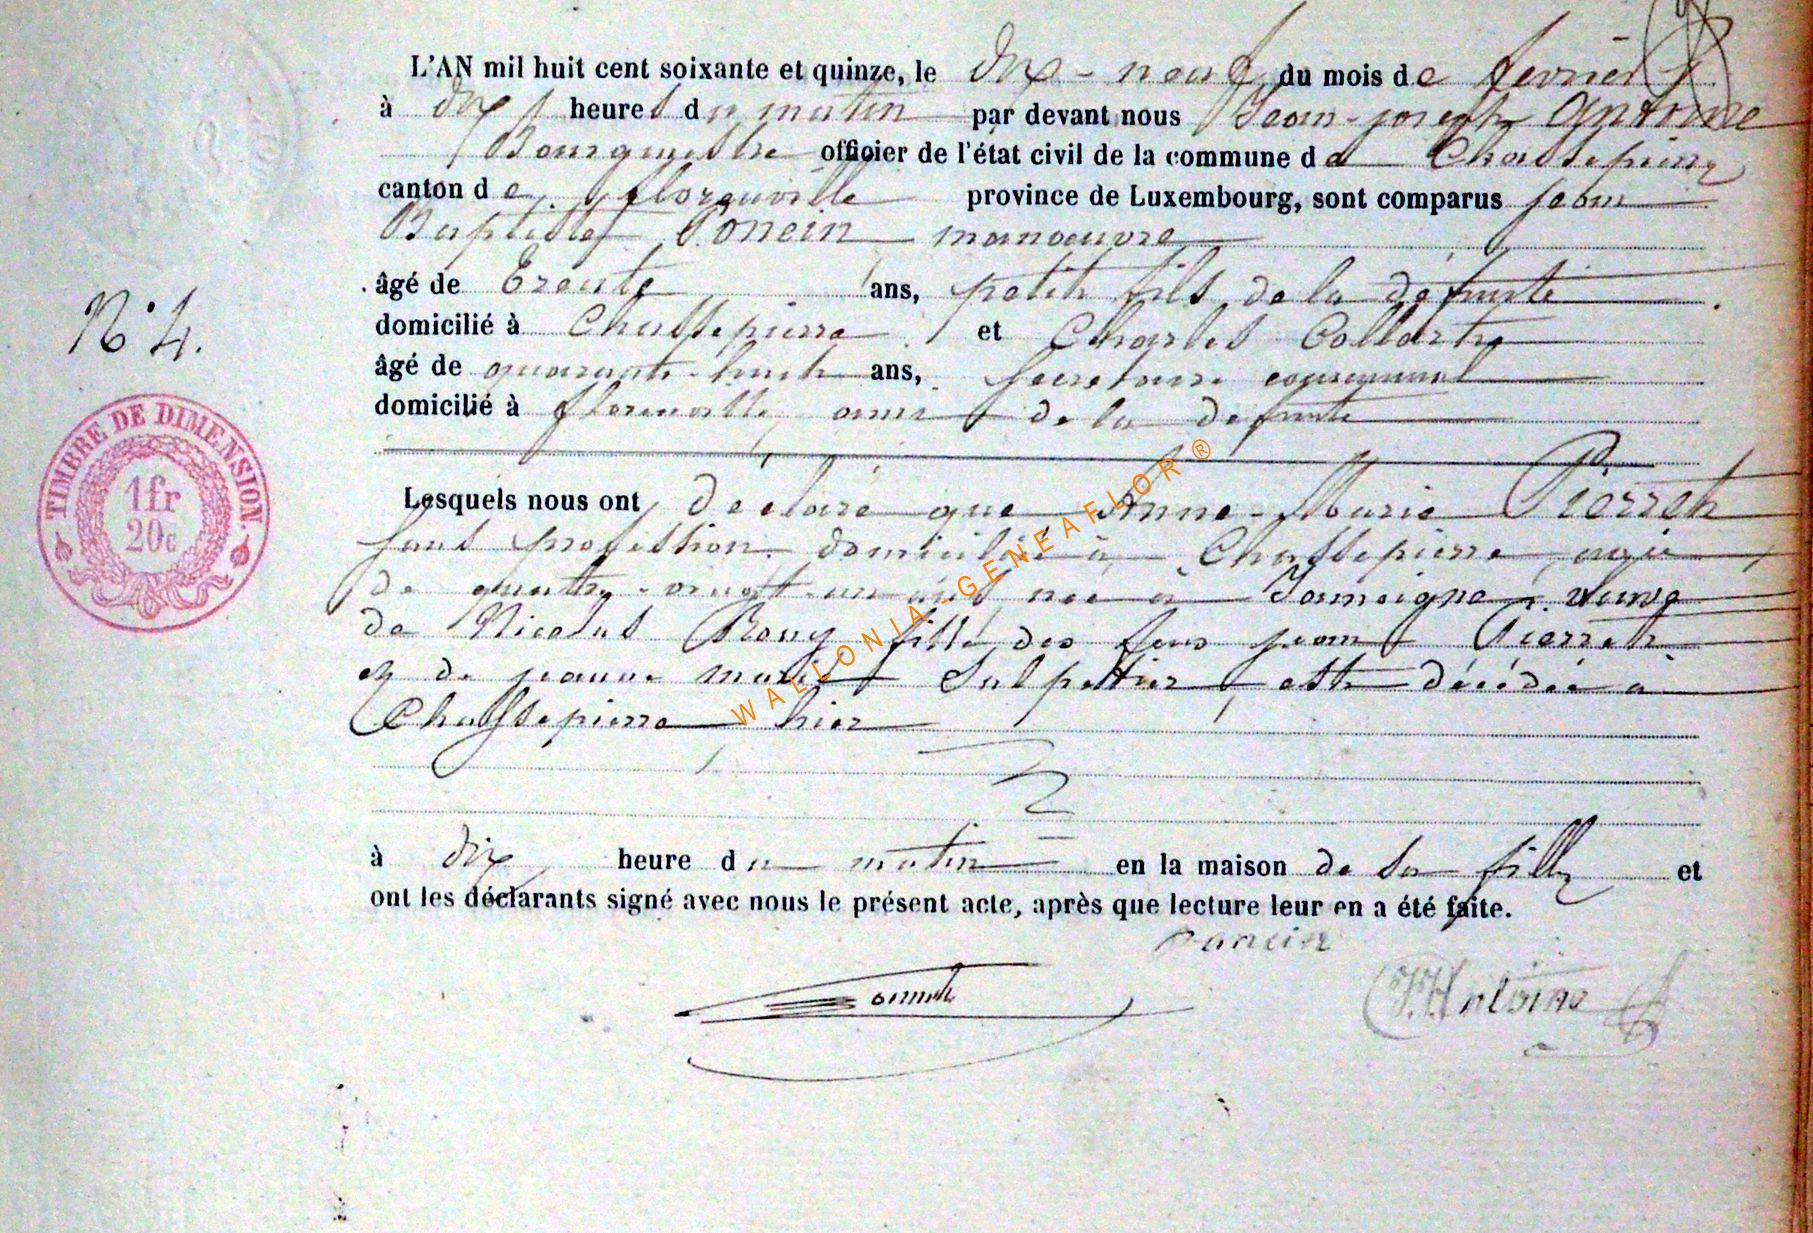 L'AN mil huit cent soixante et quinze, le dix-neuf du mois de fevrier
à dix heures du matin par devant nous Jean-joseph Antoine
Bourgmestre officier de l'état civil de la commune de Chassepierre
canton de florenville province de Luxembourg, sont comparus jean
Baptiste Poncin manoeuvre
âgé de Trente ans, petit fils de la défunte
N° 4.
domicilié à Chassepierre et Charles Collart
âgé de quarante-huit ans, Secretaire communal
domicilié à florenville, ami de la defunte
TIMBRE DE DIMENSION.
1fr
20c
Lesquels nous ont déclaré que Anne-Marie Pierret
sans profession domiciliée à Chassepierre agée
de quatre-vingt-un ans née à Jamoigne, veuve
de Nicolas Rony fille des feus jean Pierret
et de jeanne marie Salpettier, est décédée à
Chassepierre hier
WALLONIA-GENEAFLOR ®
à dix heure du matin en la maison de sa fille et
ont les déclarants signé avec nous le présent acte, après que lecture leur en a été faite.
Poncin
Antoine